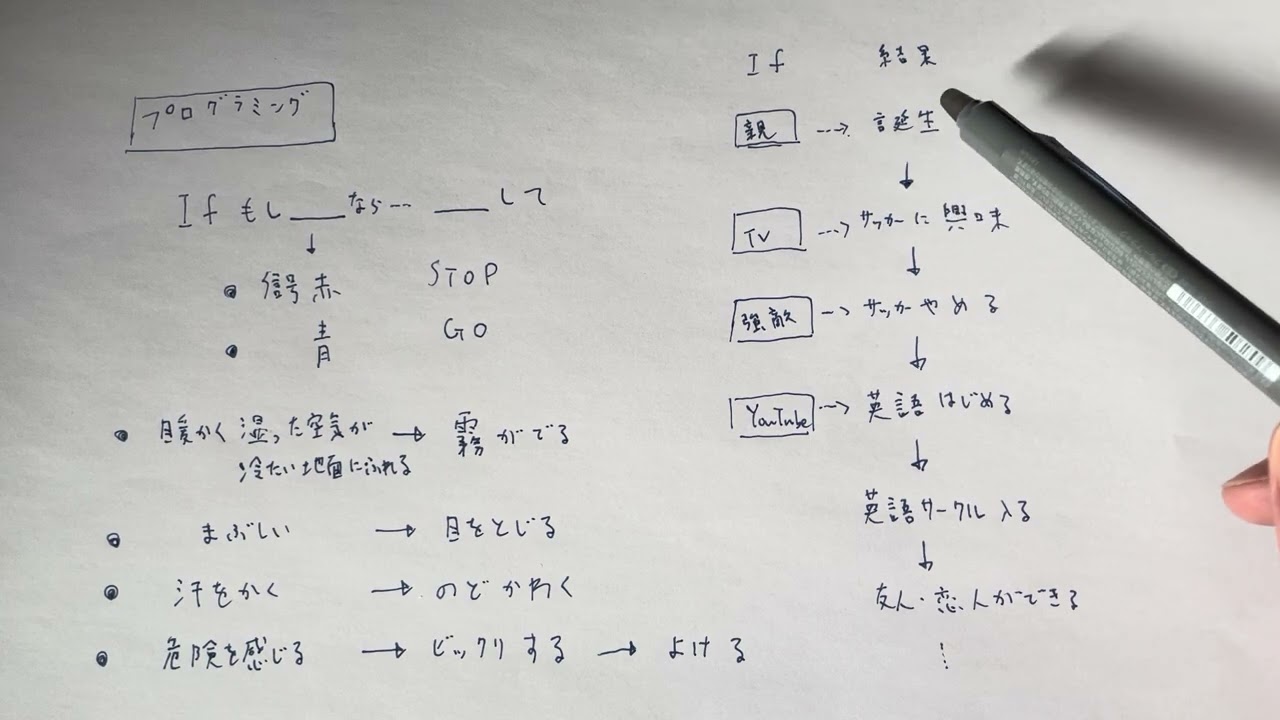 プログラミング
If もし___なら… ___して
↓
● 信号赤 STOP
● 青 GO
● 暖かく湿った空気が → 霧がでる
冷たい地面にふれる
● まぶしい → 目をとじる
● 汗をかく → のどかわく
● 危険を感じる → ビックリする → よける
If 結果
親 --→ 誕生
↓
TV --→ サッカーに興味
↓
強敵 --→ サッカーやめる
↓
YouTube --→ 英語はじめる
↓
英語サークル入る
↓
友人・恋人ができる
⋮